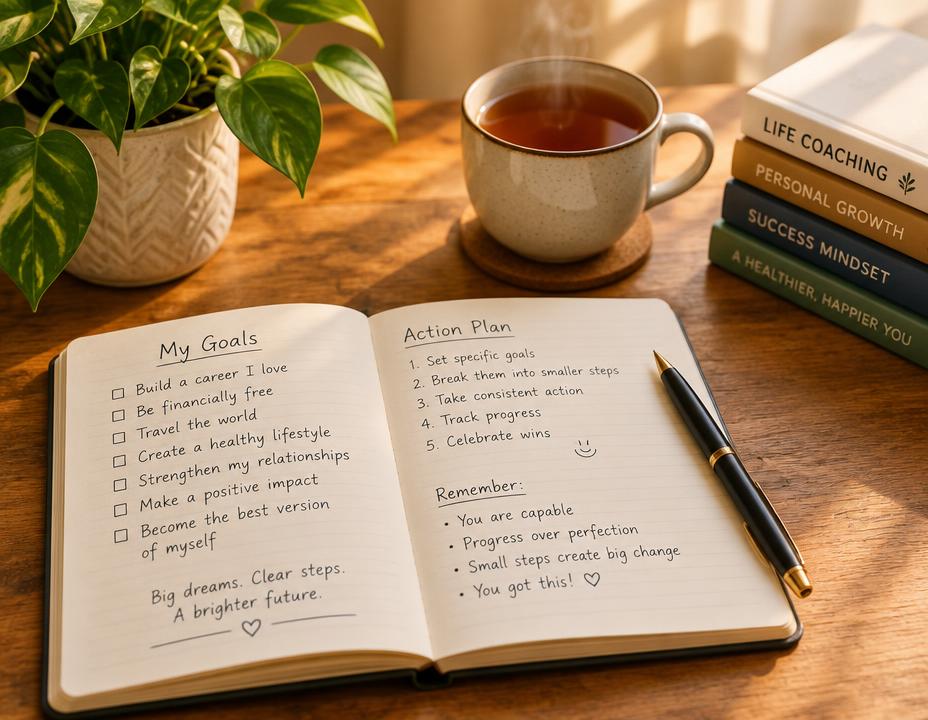 My Goals
Build a career I love
Be financially free
Travel the world
Create a healthy lifestyle
Strengthen my relationships
Make a positive impact
Become the best version
of myself
Big dreams. Clear steps.
A brighter future.
Action Plan
1. Set specific goals
2. Break them into smaller steps
3. Take consistent action
4. Track progress
5. Celebrate wins
Remember:
• You are capable
• Progress over perfection
• Small steps create big change
• You got this! ♡
LIFE COACHING
PERSONAL GROWTH
SUCCESS MINDSET
A HEALTHIER, HAPPIER YOU